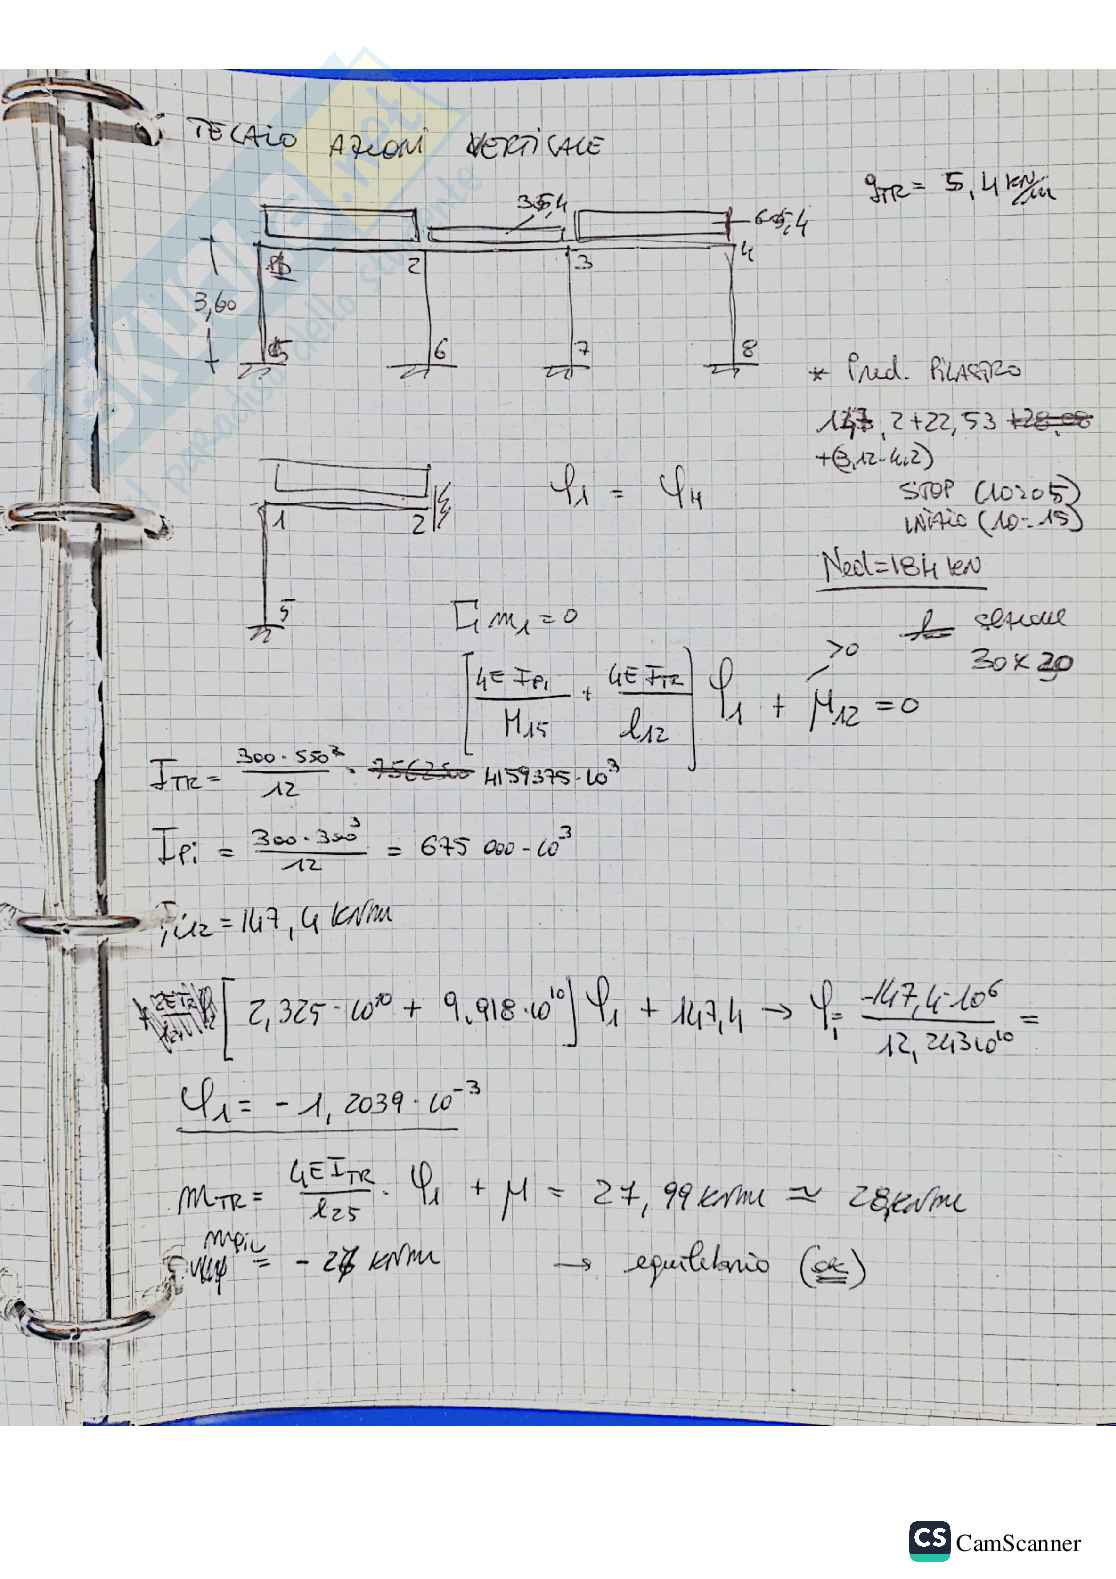 TELAIO AZIONI VERTICALE
qTR = 5,4 kN/m
35,4
65,4
1 2 3 4
3,60
5 6 7 8
* Pred. PILASTRO
147,2+22,53
+(3,12-4.2)
STOP (10:05)
INIZIO (10:15)
Ned=184 kN
sezione
30x30
φ1 = φ4
1 2
5
Σ m1 = 0
>0
[4E IPi / H15 + 4E ITR / l12] φ1 + μ12 = 0
ITR = 300·550³ / 12 = 4159375·10³
IPi = 300·300³ / 12 = 675 000·10³
μ12 = 147,4 kNm
[2,325·10¹⁰ + 9,918·10¹⁰] φ1 + 147,4 → φ1 = -147,4·10⁶ / 12,243·10¹⁰ =
φ1 = -1,2039·10⁻³
mTR = 4EITR / l25 · φ1 + μ = 27,99 kNm ≃ 28 kNm
mpil = -28 kNm → equilibrio (ok)
SKUOLA.net
il paradiso dello studente
CS CamScanner